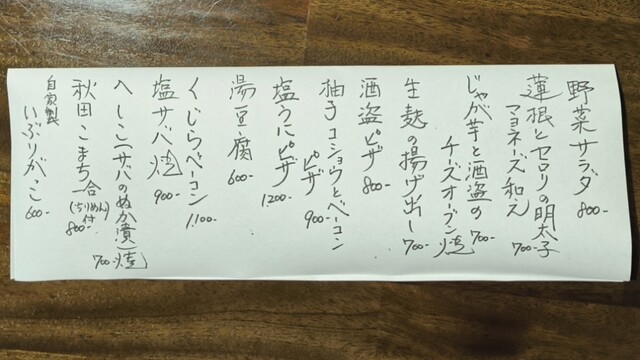 野菜サラダ 800-
蓮根とセロリの明太子
マヨネーズ和え 700-
じゃが芋と酒盗の
チーズオーブン焼 700-
生麩の揚げ出し 700-
酒盗ピザ 800-
柚子コショウとベーコン
ピザ 900-
塩うにピザ 1200-
湯豆腐 600-
くじらベーコン 1,100-
塩サバ焼 900-
へしこ(サバのぬか漬)焼 700-
秋田こまち一合
(ちりめん)付 800-
自家製
いぶりがっこ 600-